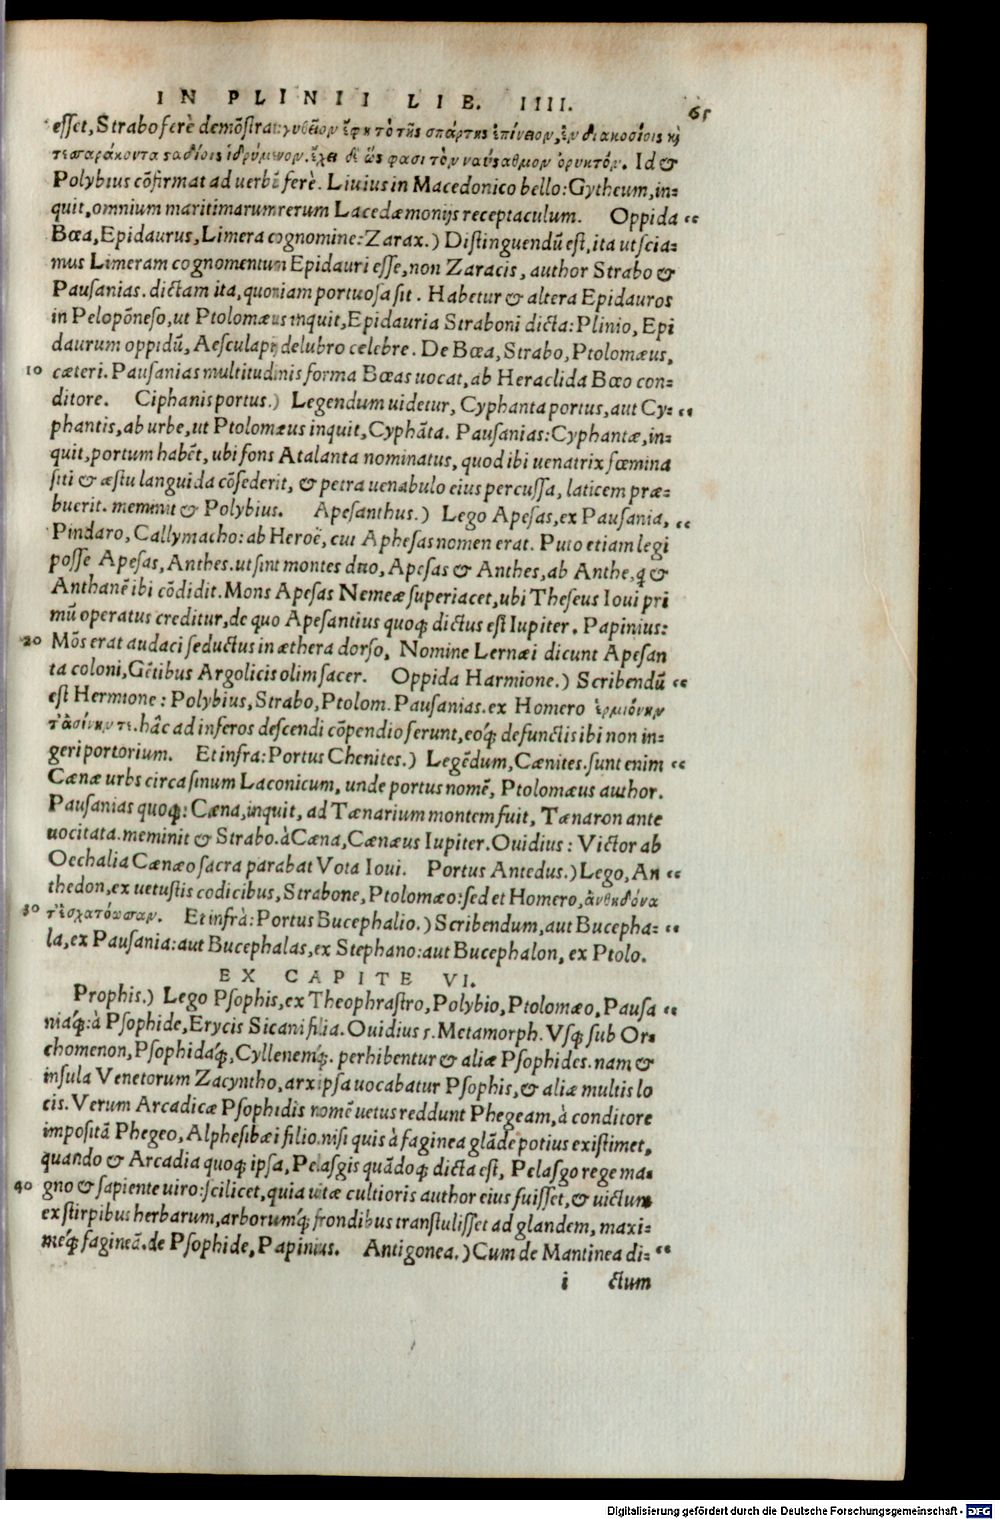 IN PLINII LIB. IIII. 65
esset, Strabo ferè demõstrat: γυθεῖον ἔφη τὸ τῆς σπάρτης ἐπίνειον, ἐν διακοσίοις κỳ
τεσσαράκοντα ςαδίοις ἱδρύμενον. ἔχει δ' ὥς φασι τὸν ναύςαθμον ὀρυκτόν. Id &
Polybius cõfirmat ad uerbũ ferè. Liuius in Macedonico bello: Gytheum, in=
quit, omnium maritimarum rerum Lacedæmonijs receptaculum. Oppida “
Bœa, Epidaurus, Limera cognomine: Zarax.) Distinguendũ est, ita ut scia=
mus Limeram cognomentum Epidauri esse, non Zaracis, author Strabo &
Pausanias. dictam ita, quoniam portuosa sit. Habetur & altera Epidauros
in Pelopõneso, ut Ptolomæus inquit, Epidauria Straboni dicta: Plinio, Epi
daurum oppidũ, Aesculapij delubro celebre. De Bœa, Strabo, Ptolomæus,
10 cæteri. Pausanias multitudinis forma Bœas uocat, ab Heraclida Bœo con=
ditore. Ciphanis portus.) Legendum uidetur, Cyphanta portus, aut Cy= “
phantis, ab urbe, ut Ptolomæus inquit, Cyphãta. Pausanias: Cyphantæ, in=
quit, portum habẽt, ubi fons Atalanta nominatus, quod ibi uenatrix fœmina
siti & æstu languida cõsederit, & petra uenabulo eius percussa, laticem præ=
buerit. meminit & Polybius. Apesanthus.) Lego Apesas, ex Pausania, “
Pindaro, Callymacho: ab Heroë, cui Aphesas nomen erat. Puto etiam legi
posse Apesas, Anthes. ut sint montes duo, Apesas & Anthes, ab Anthe, ꝗ &
Anthanẽ ibi cõdidit. Mons Apesas Nemeæ superiacet, ubi Theseus Ioui pri
mũ operatus creditur, de quo Apesantius quoqꝫ dictus est Iupiter. Papinius:
20 Mõs erat audaci seductus in æthera dorso, Nomine Lernæi dicunt Apesan
ta coloni, Gẽtibus Argolicis olim sacer. Oppida Harmione.) Scribendũ “
est Hermione: Polybius, Strabo, Ptolom. Pausanias. ex Homero ἑρμιόνην
τ' ἀσίνην τε. hâc ad inferos descendi cõpendio ferunt, eóqꝫ defunctis ibi non in=
geri portorium. Et infra: Portus Chenites.) Legẽdum, Cænites. sunt enim “
Cænæ urbs circa sinum Laconicum, unde portus nomẽ, Ptolomæus author.
Pausanias quoqꝫ: Cæna, inquit, ad Tænarium montem fuit, Tænaron ante
uocitata. meminit & Strabo. à Cæna, Cænæus Iupiter. Ouidius: Victor ab
Oechalia Cænæo sacra parabat Vota Ioui. Portus Antedus.) Lego, An “
thedon, ex uetustis codicibus, Strabone, Ptolomæo: sed et Homero, ἀνθηδόνα
30 τ' ἐσχατόωσαν. Et infrà: Portus Bucephalio.) Scribendum, aut Bucepha= “
la, ex Pausania: aut Bucephalas, ex Stephano: aut Bucephalon, ex Ptolo.
EX CAPITE VI.
Prophis.) Lego Psophis, ex Theophrastro, Polybio, Ptolomæo, Pausa “
niáqꝫ: à Psophide, Erycis Sicani filia. Ouidius 5. Metamorph. Vsqꝫ sub Or=
chomenon, Psophidáqꝫ, Cyllenemqꝫ. perhibentur & aliæ Psophides. nam &
insula Venetorum Zacyntho, arx ipsa uocabatur Psophis, & aliæ multis lo
cis. Verum Arcadicæ Psophidis nomẽ uetus reddunt Phegeam, à conditore
impositã Phegeo, Alphesibœi filio. nisi quis à faginea glãde potius existimet,
quando & Arcadia quoqꝫ ipsa, Pelasgis quãdoqꝫ dicta est, Pelasgo rege ma=
40 gno & sapiente uiro: scilicet, quia uitæ cultioris author eius fuisset, & uictum
ex stirpibus herbarum, arborumqꝫ frondibus transtulisset ad glandem, maxi=
meqꝫ fagineã. de Psophide, Papinius. Antigonea.) Cum de Mantinea di= “
i ctum
Digitalisierung gefördert durch die Deutsche Forschungsgemeinschaft - DFG